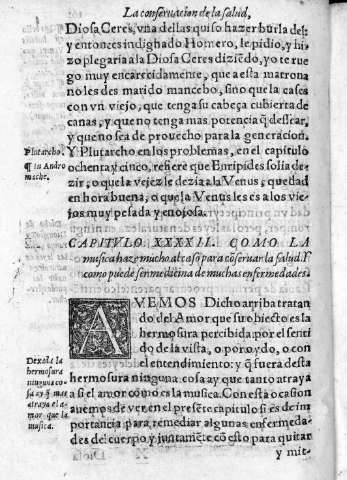 La conseruacion de la salud,
Diosa Ceres, vna dellas quiso hazer burla del:
y entonces indignado Homero, le pidio, y hi
zo plegaria a la Diosa Ceres diziẽdo, yo te rue
go muy encarecidamente, que a esta matrona
no les des marido mancebo, sino que la cases
con vn viejo, que tenga su cabeça cubierta de
canas, y que no tenga mas potencia q̃ dessear,
y que no sea de prouecho para la generacion.
Plutarcho.
¶ in Andro
mache.
Y Plutarcho en los problemas, en el capitulo
ochenta y cinco, refiere que Euripides solia de
zir, o que la vejez le dezia a la Venus, quedad
en hora buena, o que la Venus les es a los vie
jos muy pesada y enojosa.
CAPITVLO XXXXII. COMO LA
musica haze mucho al caso para cõseruar la salud. Y
como puede ser medicina de muchas enfermedades.
AVEMOS Dicho arriba tratan
do del Amor que su obiecto es la
hermosura percibida por el senti
do de la vista, o por oydo, o con
el entendimiento: y q̃ fuera desta
hermosura ninguna cosa ay que tanto atraya
a si el amor como es la musica. Con esta ocasion
auemos de ver en el presẽte capitulo si es de im
portancia para remediar algunas enfermeda-
des del cuerpo y juntamẽte cõ esto para quitar
y mit-
Dexola la
hermosura
ninguna co-
sa ay q̃ mas
atraya el a-
mor que la
musica.